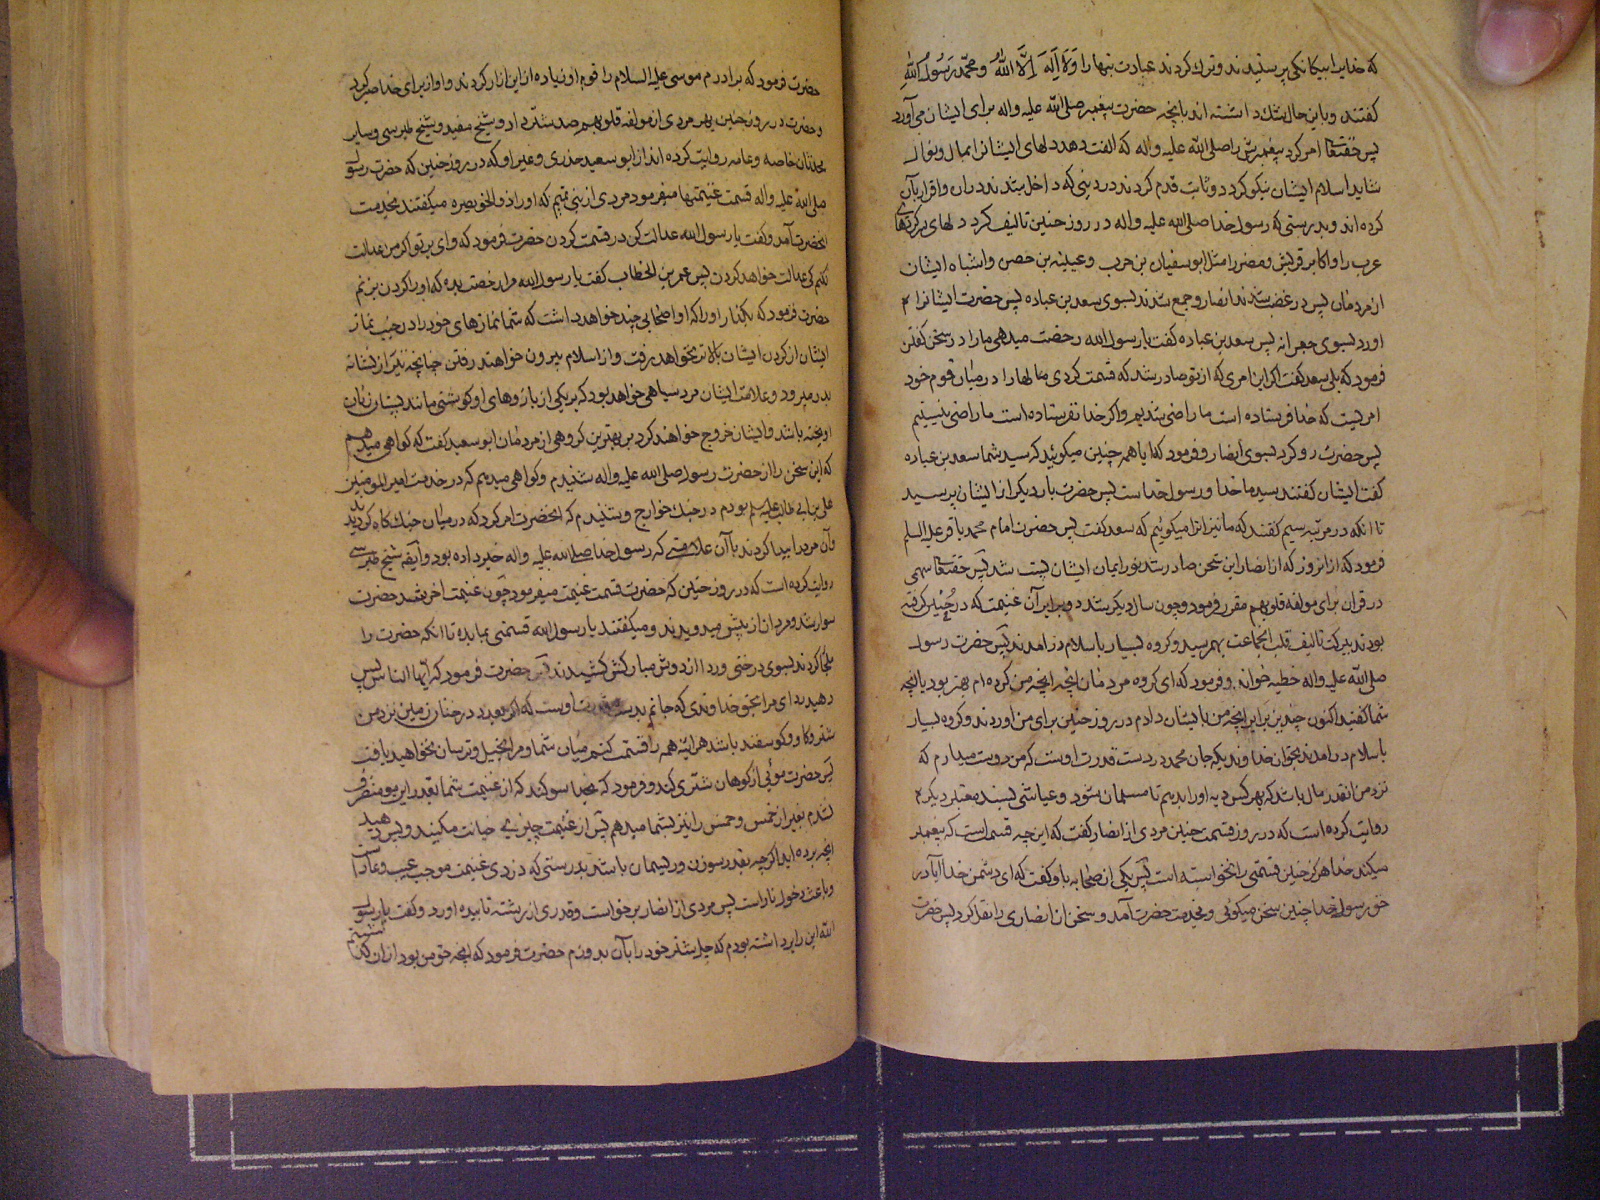 که خدا را بیکانکی پرستیدند و ترک کردند عبادت بتها را و لا اله الا الله و محمد رسول الله
کفتند و با این حال شک داشته اند بانچه حضرت پیغمبر صلی الله علیه واله برای ایشان می آورد
پس حقتعالی امر کرد پیغمبرش را صلی الله علیه واله که الفت دهد دلهای ایشانرا بمال و نوال
شاید اسلام ایشان نیکو کردد و ثابت قدم کردند در دینی که داخل شدند در آن و اقرار بآن
کرده اند و بدرستی که رسول خدا صلی الله علیه واله در روز حنین تالیف کرد دلهای سرکردهای
عرب را و اکابر قریش و مضر را مثل ابوسفیان بن حرب و عیینه بن حصن و اشباه ایشان
از مردمان پس در غضب شدند انصار و جمع شدند بسوی سعد بن عباده پس حضرت ایشانرا
اورد بسوی جعرانه پس سعد بن عباده کفت یا رسول الله رخصت میدهی مارا در سخن کفتن
فرمود که بلی سعد کفت اکر این امری که از تو صادر شد که قسمت کردی مالها را در میان قوم خود
امریست که خدا فرستاده است ما راضی شدیم و اکر خدا نفرستاده است ما راضی نیستیم
پس حضرت رو کرد بسوی انصار و فرمود که ایا همه چنین میکوئید که سید شما سعد بن عباده
کفت ایشان کفتند سید ما خدا و رسول خداست پس حضرت بار دیکر از ایشان پرسید
تا انکه در مرتبه سیم کفتند که ما نیز انرا میکوئیم که سعد کفت پس حضرت امام محمد باقر علیه السلام
فرمود که از انروز که از انصار این سخن صادر شد نور ایمان ایشان پست شد پس حقتعالی سهمی
در قران برای مولفه قلوبهم مقرر فرمود و چون سال دیکر شد دو برابر آن غنیمت که در حنین کرفته
بودند ببرکت تالیف قلب انجماعت بهم رسید و کروه بسیار باسلام درامدند پس حضرت رسول
صلی الله علیه واله خطبه خواند و فرمود که ای کروه مردمان انچه من کرده ام بهتر بود یا انچه
شما کفتید اکنون چندین برابر انچه من بایشان دادم در روز حنین برای من اوردند و کروه بسیار
باسلام درامدند بحق ان خداوندیکه جان محمد در دست قدرت اوست که من دوست میدارم که
نزد من انقدر مال باشد که بهر کس دیه او را بدهم تا مسلمان شود و عیاشی بسند معتبر دیکر
روایت کرده است که در روز قسمت حنین مردی از انصار کفت که این چه قسم است که پیغمبر
میکند خدا هرکز چنین قسمتی را نخواسته است پس یکی از صحابه باو کفت که ای دشمن خدا ایا در
حق رسول خدا چنین سخن میکوئی و بخدمت حضرت آمد و سخن ان انصاری را نقل کرد پس حضرت
حضرت فرمود که برادرم موسی علیه السلام را قوم او زیاده از این ازار کردند و او از برای خدا صبر کرد
و حضرت در روز حنین بهر مردی از مولفه قلوبهم صد شتر داد و شیخ مفید و شیخ طبرسی و سایر
محدثان خاصه و عامه روایت کرده اند از ابو سعید خدری و غیر او که در روز حنین که حضرت رسول
صلی الله علیه واله قسمت غنیمتها میفرمود مردی از بنی تمیم که او را ذو الخویصره میکفتند بخدمت
انحضرت آمد و کفت یا رسول الله عدالت کن در قسمت کردن حضرت فرمود که وای بر تو اکر من عدالت
نکنم کی عدالت خواهد کردن پس عمر بن الخطاب کفت یا رسول الله مرا رخصت بده که او را کردن بزنم
حضرت فرمود که بکذار او را که او اصحابی چند خواهد داشت که شما نمازهای خود را در جنب نماز
ایشان از کردن ایشان بالاتر نخواهد رفت و از اسلام بیرون خواهند رفتن چنانچه تیر از نشانه
بدر میرود و علامت ایشان مرد سیاهی خواهد بود که بر یکی از بازوهای او کوشتی مانند پستان زنان
اویخته باشد و ایشان خروج خواهند کرد بر بهترین کروهی از مردمان ابو سعید کفت که کواهی میدهم
که این سخن را از حضرت رسول صلی الله علیه واله شنیدم و کواهی میدهم که در خدمت امیر المومنین
علی بن ابی طالب علیه السلام بودم در جنک خوارج و شنیدم که انحضرت امر کرد که در میان جنک کاه کردیدند
و آن مرد را پیدا کردند با آن علامتی که رسول خدا صلی الله علیه واله خبر داده بود و ایضا شیخ طبرسی
روایت کرده است که در روز حنین که حضرت قسمت غنیمت میفرمود چون غنیمت اخر شد حضرت
سوار شد و مردان از پیش میدویدند و میکفتند یا رسول الله قسمتی بما بده تا انکه حضرت را
ملجا کردند بسوی درختی و ردا از دوش مبارکش کشیدند پس حضرت فرمود که ایها الناس پس
دهید ردای مرا بحق خداوندی که جانم بدست قدرت اوست که اکر بعدد درختان زمین نزد من
شتر و کاو و کوسفند باشد هر اینه همه را قسمت کنم میان شما و مرا بخیل و ترسان نخواهید یافت
پس حضرت موئی از کوهان شتری کند و فرمود که بخدا سوکند که از غنیمت شما بقدر این مو متصرف
نشدم بغیر از خمس و خمس را نیز بشما میدهم پس از غنیمت چیزی خیانت مکنید و پس دهید
انچه برده اید اکرچه بقدر سوزن و ریسمان باشد بدرستی که دزدی غنیمت موجب عیب و عار است
و باعث دخول نار است پس مردی از انصار برخواست و قدری از رشته تابیده اورد و کفت یا رسول
الله این را برداشته بودم که جل شتر خود را بآن بدوزم حضرت فرمود که انچه حق من بود از ان کذشتم